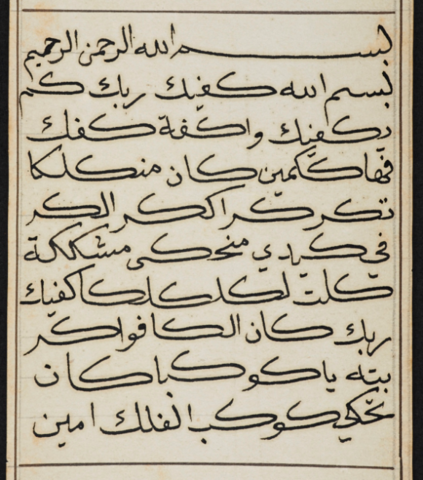 بسم الله الرحمن الرحيم
بسم الله كفيك ربك كم
يكفيك واكفة كفك
فهاككمين كان منكلكا
تكر كرا ككر الكر
في كبدي منحكى مشككة
كلت لكلكلكا كفيك
ربك كان الكافواكر
بيته ياكوكبا كان
تحكي كوكب الفلك امين